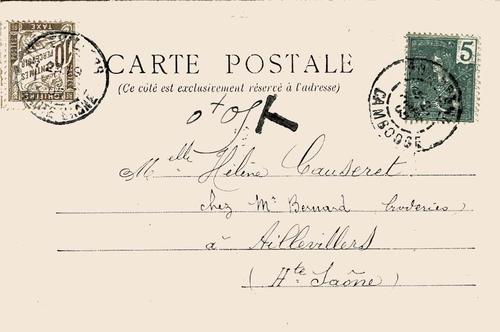 CARTE POSTALE
(Ce côté est exclusivement réservé à l'adresse)
T
5
CAMBODGE
10
CENTIMES
TAXE
Melle Hélène Causeret
chez Mr Bernard Broderies
à Aillevillers
(Hte Saône)